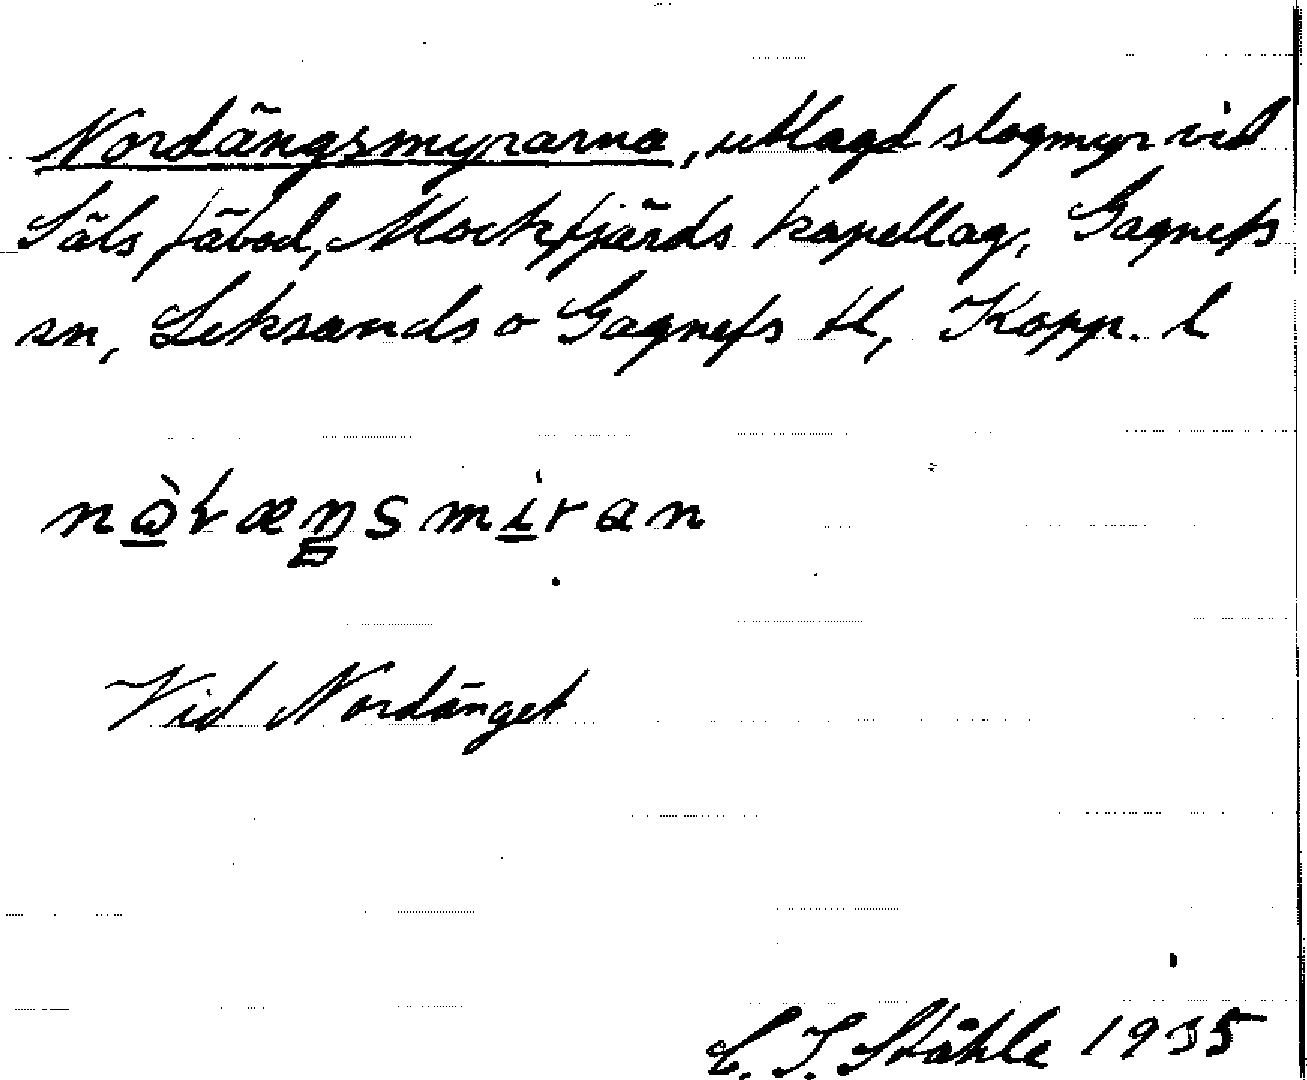 Nordängsmyrarna, utlagd slogmyr vid
Säls fäbod, Mockfjärds kapellag, Gagnefs
sn, Leksands o Gagnefs tl, Kopp. l
Vid Nordänget
C. I. Ståhle 1935